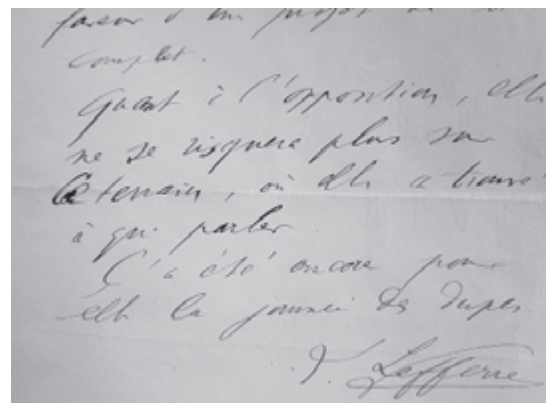 faveur d'un projet
complet.
Quant à l'opposition, elle
ne se risquera plus sur
ce terrain, où elle a trouvé
à qui parler.
Ç'a été encore pour
elle la journée des dupes.
Lefferre